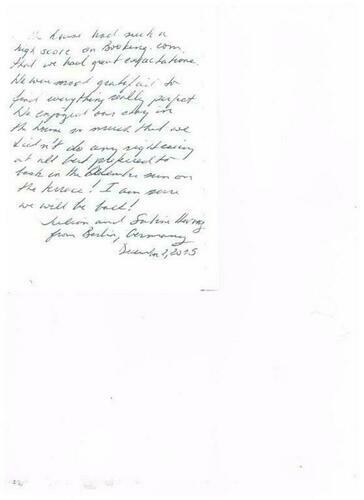 The house had such a
high score on Booking.com,
that we had great expectations.
We were most grateful to
find everything really perfect.
We enjoyed our stay in
the house so much that we
didn't do any sightseeing
at all but preferred to
bask in the December sun on
the terrace! I am sure
we will be back!
and Sabine
from Berlin, Germany
December 2, 2015